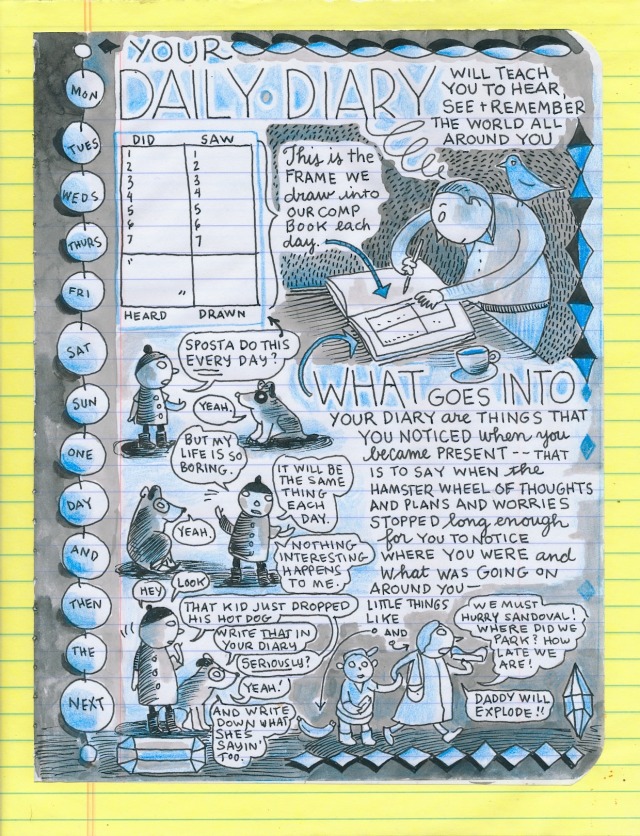 YOUR
DAILY DIARY
WILL TEACH
YOU TO HEAR,
SEE + REMEMBER
THE WORLD ALL
AROUND YOU
MON
TUES
WEDS
THURS
FRI
SAT
SUN
ONE
DAY
AND
THEN
THE
NEXT
DID SAW
1 1
2 2
3 3
4 4
5 5
6 6
7 7
" "
HEARD DRAWN
This is the
FRAME WE
draw into
OUR COMP
BOOK each
day.
SPOSTA DO THIS
EVERY DAY?
YEAH.
BUT MY
LIFE IS SO
BORING.
IT WILL BE
THE SAME
THING
EACH
DAY.
YEAH.
NOTHING
INTERESTING
HAPPENS
TO ME.
WHAT GOES INTO
YOUR DIARY are THINGS THAT
YOU NOTICED when you
became PRESENT -- THAT
IS TO SAY WHEN the
HAMSTER WHEEL OF THOUGHTS
AND PLANS AND WORRIES
STOPPED long enough
for YOU TO NOTICE
WHERE YOU WERE and
what WAS GOING ON
AROUND YOU—
HEY
LOOK
THAT KID JUST DROPPED
HIS HOT DOG
WRITE THAT IN
YOUR DIARY
SERIOUSLY?
YEAH!
AND WRITE
DOWN WHAT
SHE'S
SAYIN'
TOO.
LITTLE THINGS
LIKE
AND
WE MUST
HURRY SANDOVAL!
WHERE DID WE
PARK? HOW
LATE WE
ARE!
DADDY WILL
EXPLODE!!